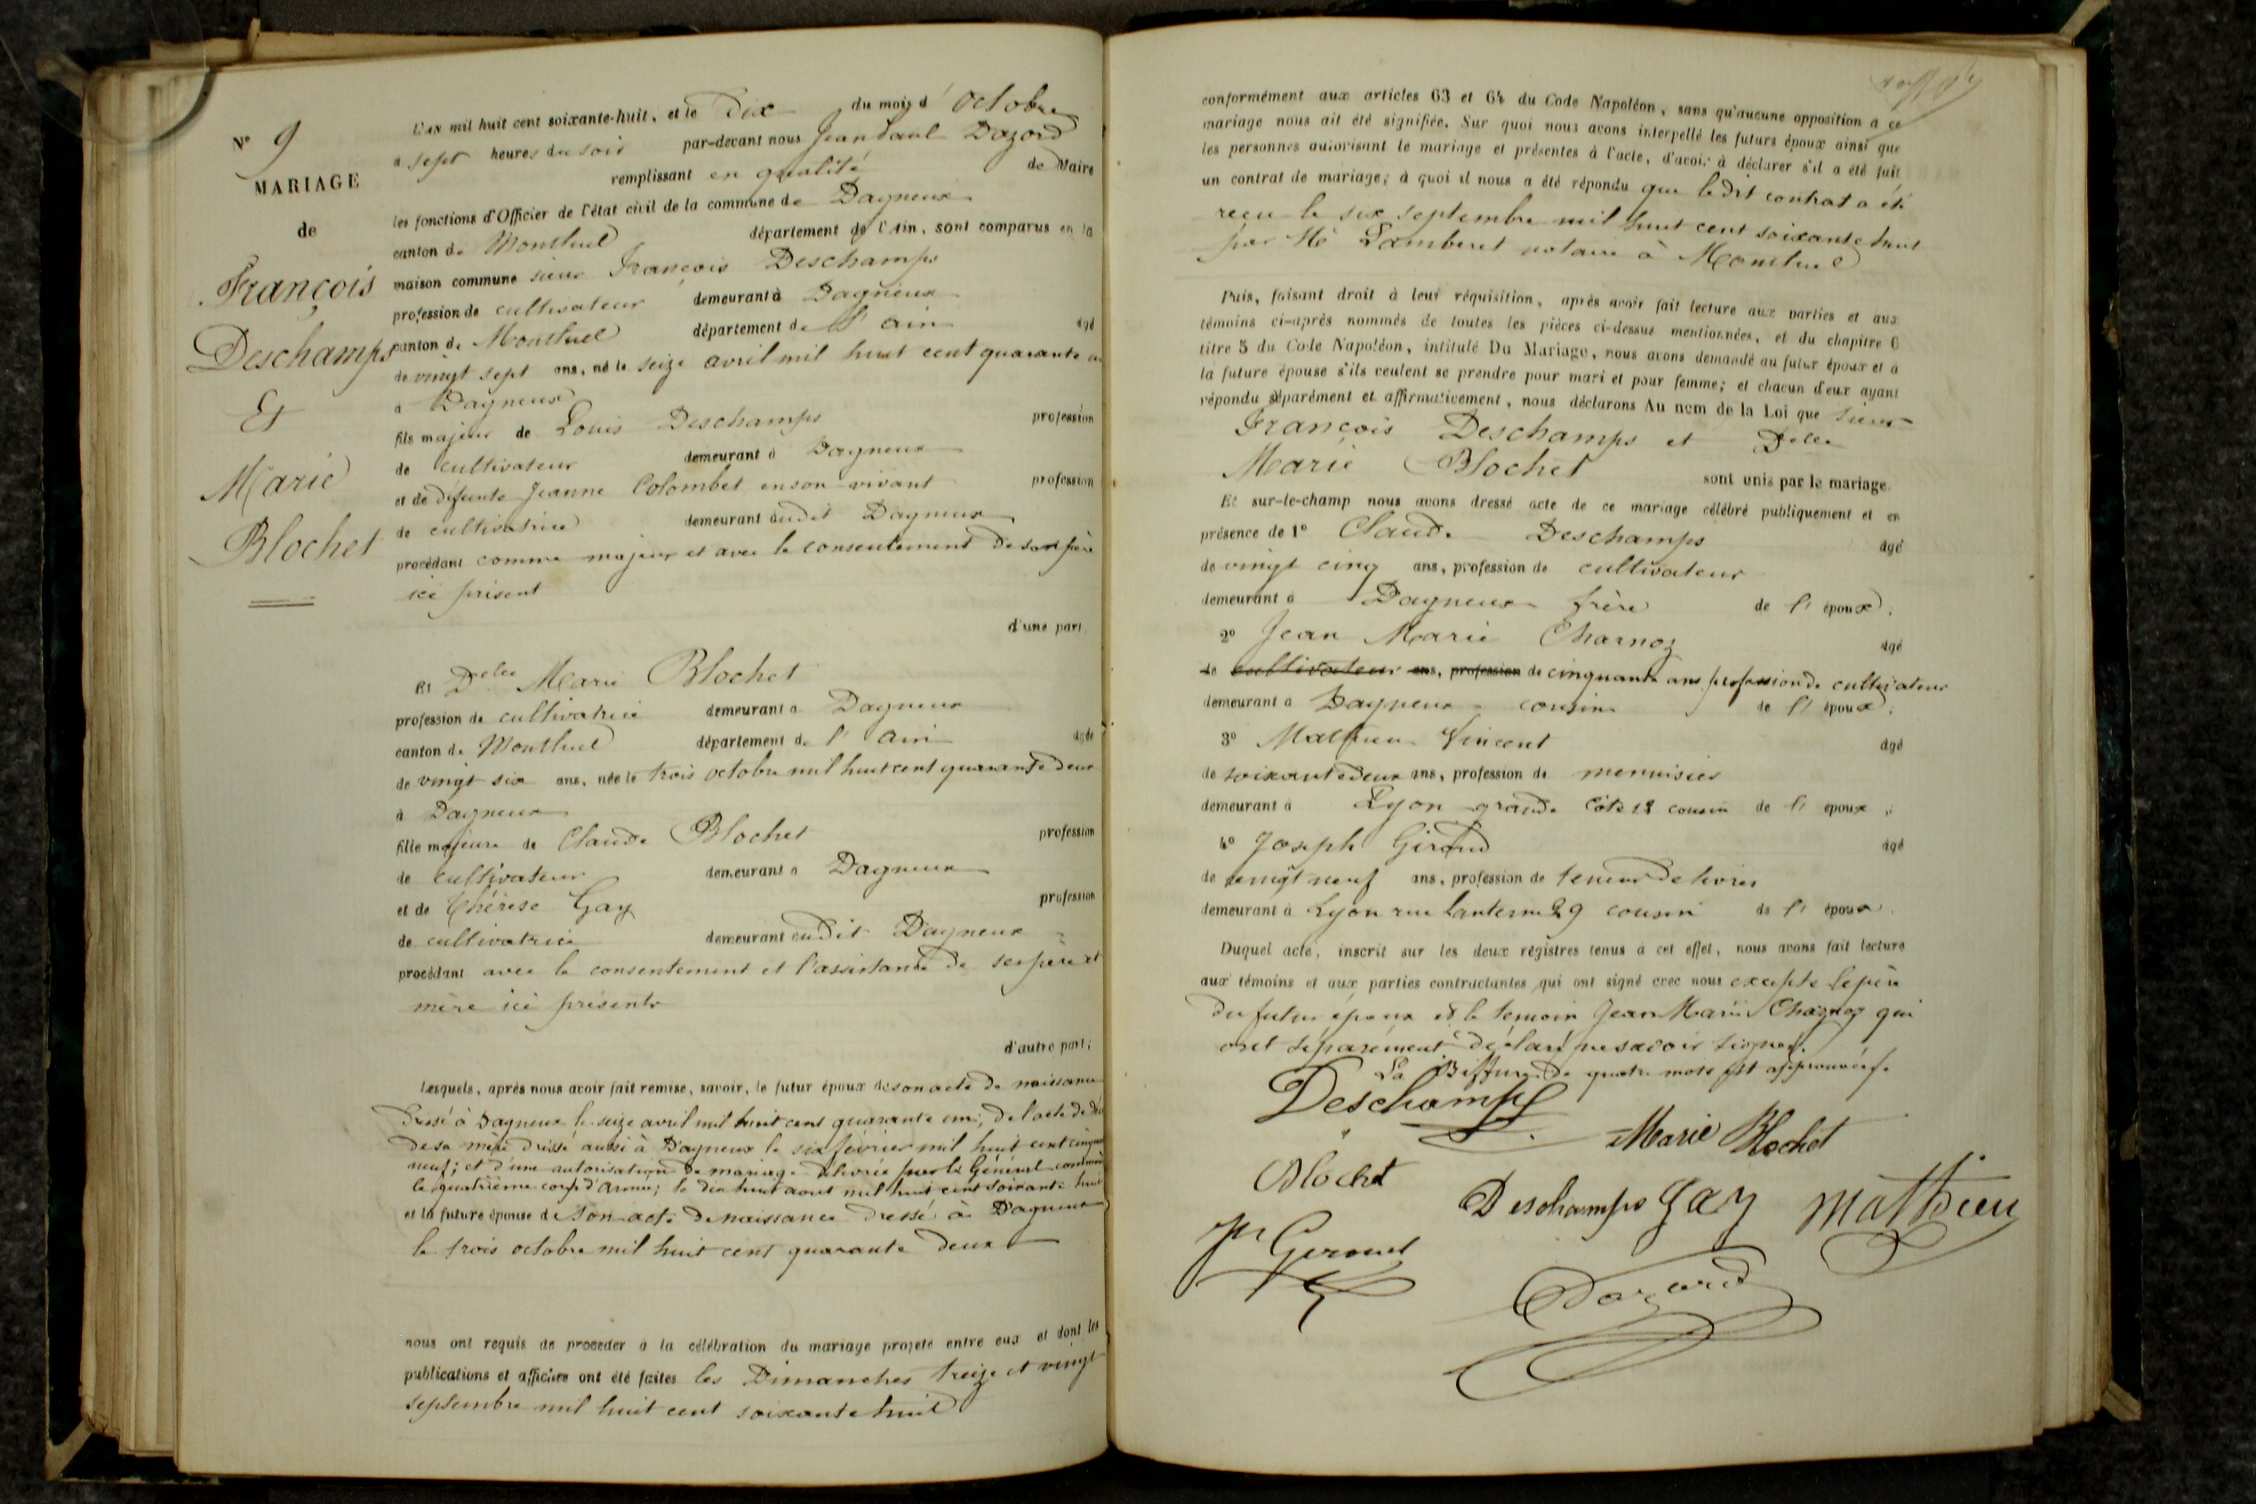 N° 9
MARIAGE
de
François
Deschamps
Et
Marie
Blochet
L'AN mil huit cent soixante-huit, et le Dix du mois d'Octobre
à sept heures du soir par-devant nous Jean Paul Dazord
remplissant en qualité de Maire
les fonctions d'Officier de l'état civil de la commune de Dagneux
canton de Montluel département de l'Ain, sont comparus en la
maison commune sieur François Deschamps
profession de cultivateur demeurant à Dagneux
canton de Montluel département de l'ain âgé
de vingt sept ans, né le seize avril mil huit cent quarante un
à Dagneux
fils majeur de Louis Deschamps profession
de cultivateur demeurant à Dagneux
et de défunte Jeanne Colombet en son vivant profession
de cultivatrice demeurant audit Dagneux
procédant comme majeur et avec le consentement de son père
ici présent
d'une part,
Et Delle Marie Blochet
profession de cultivatrice demeurant à Dagneux
canton de Montluel département de l'ain âgée
de vingt six ans, née le trois octobre mil huit cent quarante deux
à Dagneux
fille majeure de Claude Blochet profession
de cultivateur demeurant à Dagneux
et de Thérèse Gay profession
de cultivatrice demeurant audit Dagneux
procédant avec le consentement et l'assistance de ses père et
mère ici présents
d'autre part;
Lesquels, après nous avoir fait remise, savoir, le futur époux de son acte de naissance
dressé à Dagneux le seize avril mil huit cent quarante un; de l'acte de
de sa mère dressé aussi à Dagneux le six février mil huit cent
neuf; et d'une autorisation de mariage délivrée par le Général
le quatrième corps d'armée; le dix huit aout mil huit cent soixante huit
et la future épouse de son acte de naissance dressé à Dagneux
le trois octobre mil huit cent quarante deux
nous ont requis de procéder à la célébration du mariage projeté entre eux et dont les
publications et affiches ont été faites les Dimanches treize et vingt
septembre mil huit cent soixante huit
conformément aux articles 63 et 64 du Code Napoléon, sans qu'aucune opposition à ce
mariage nous ait été signifiée. Sur quoi nous avons interpellé les futurs époux ainsi que
les personnes autorisant le mariage et présentes à l'acte, d'avoir à déclarer s'il a été fait
un contrat de mariage; à quoi il nous a été répondu que ledit contrat a été
reçu le six septembre mil huit cent soixante huit
par Me Lamberet notaire à Montluel
Puis, faisant droit à leur réquisition, après avoir fait lecture aux parties et aux
témoins ci-après nommés de toutes les pièces ci-dessus mentionnées, et du chapitre 6
titre 5 du Code Napoléon, intitulé Du Mariage, nous avons demandé au futur époux et à
la future épouse s'ils veulent se prendre pour mari et pour femme; et chacun d'eux ayant
répondu séparément et affirmativement, nous déclarons Au nom de la Loi que sieur
François Deschamps et Delle
Marie Blochet sont unis par le mariage.
Et sur-le-champ nous avons dressé acte de ce mariage célébré publiquement et en
présence de 1° Claude Deschamps âgé
de vingt cinq ans, profession de cultivateur
demeurant à Dagneux frère de l'époux;
2° Jean Marie Charnoz âgé
de cultivateur ans, profession de cinquante ans profession de cultivateur
demeurant à Dagneux cousin de l'époux;
3° Mathieu Vincent âgé
de soixante deux ans, profession de menuisier
demeurant à Lyon grande Côte 12 cousin de l'époux;
4° Joseph Giroud âgé
de vingt neuf ans, profession de teneur de livres
demeurant à Lyon rue Lanterne 29 cousin de l'époux.
Duquel acte, inscrit sur les deux registres tenus à cet effet, nous avons fait lecture
aux témoins et aux parties contractantes qui ont signé avec nous excepté le père
du futur époux et le témoin Jean Marie Charnoz qui
ont séparément déclaré ne savoir signer.
La Biffure de quatre mots est approuvée
Deschamps
Marie Blochet
Blochet
Deschamps Gay Mathieu
Giroud
Dazord